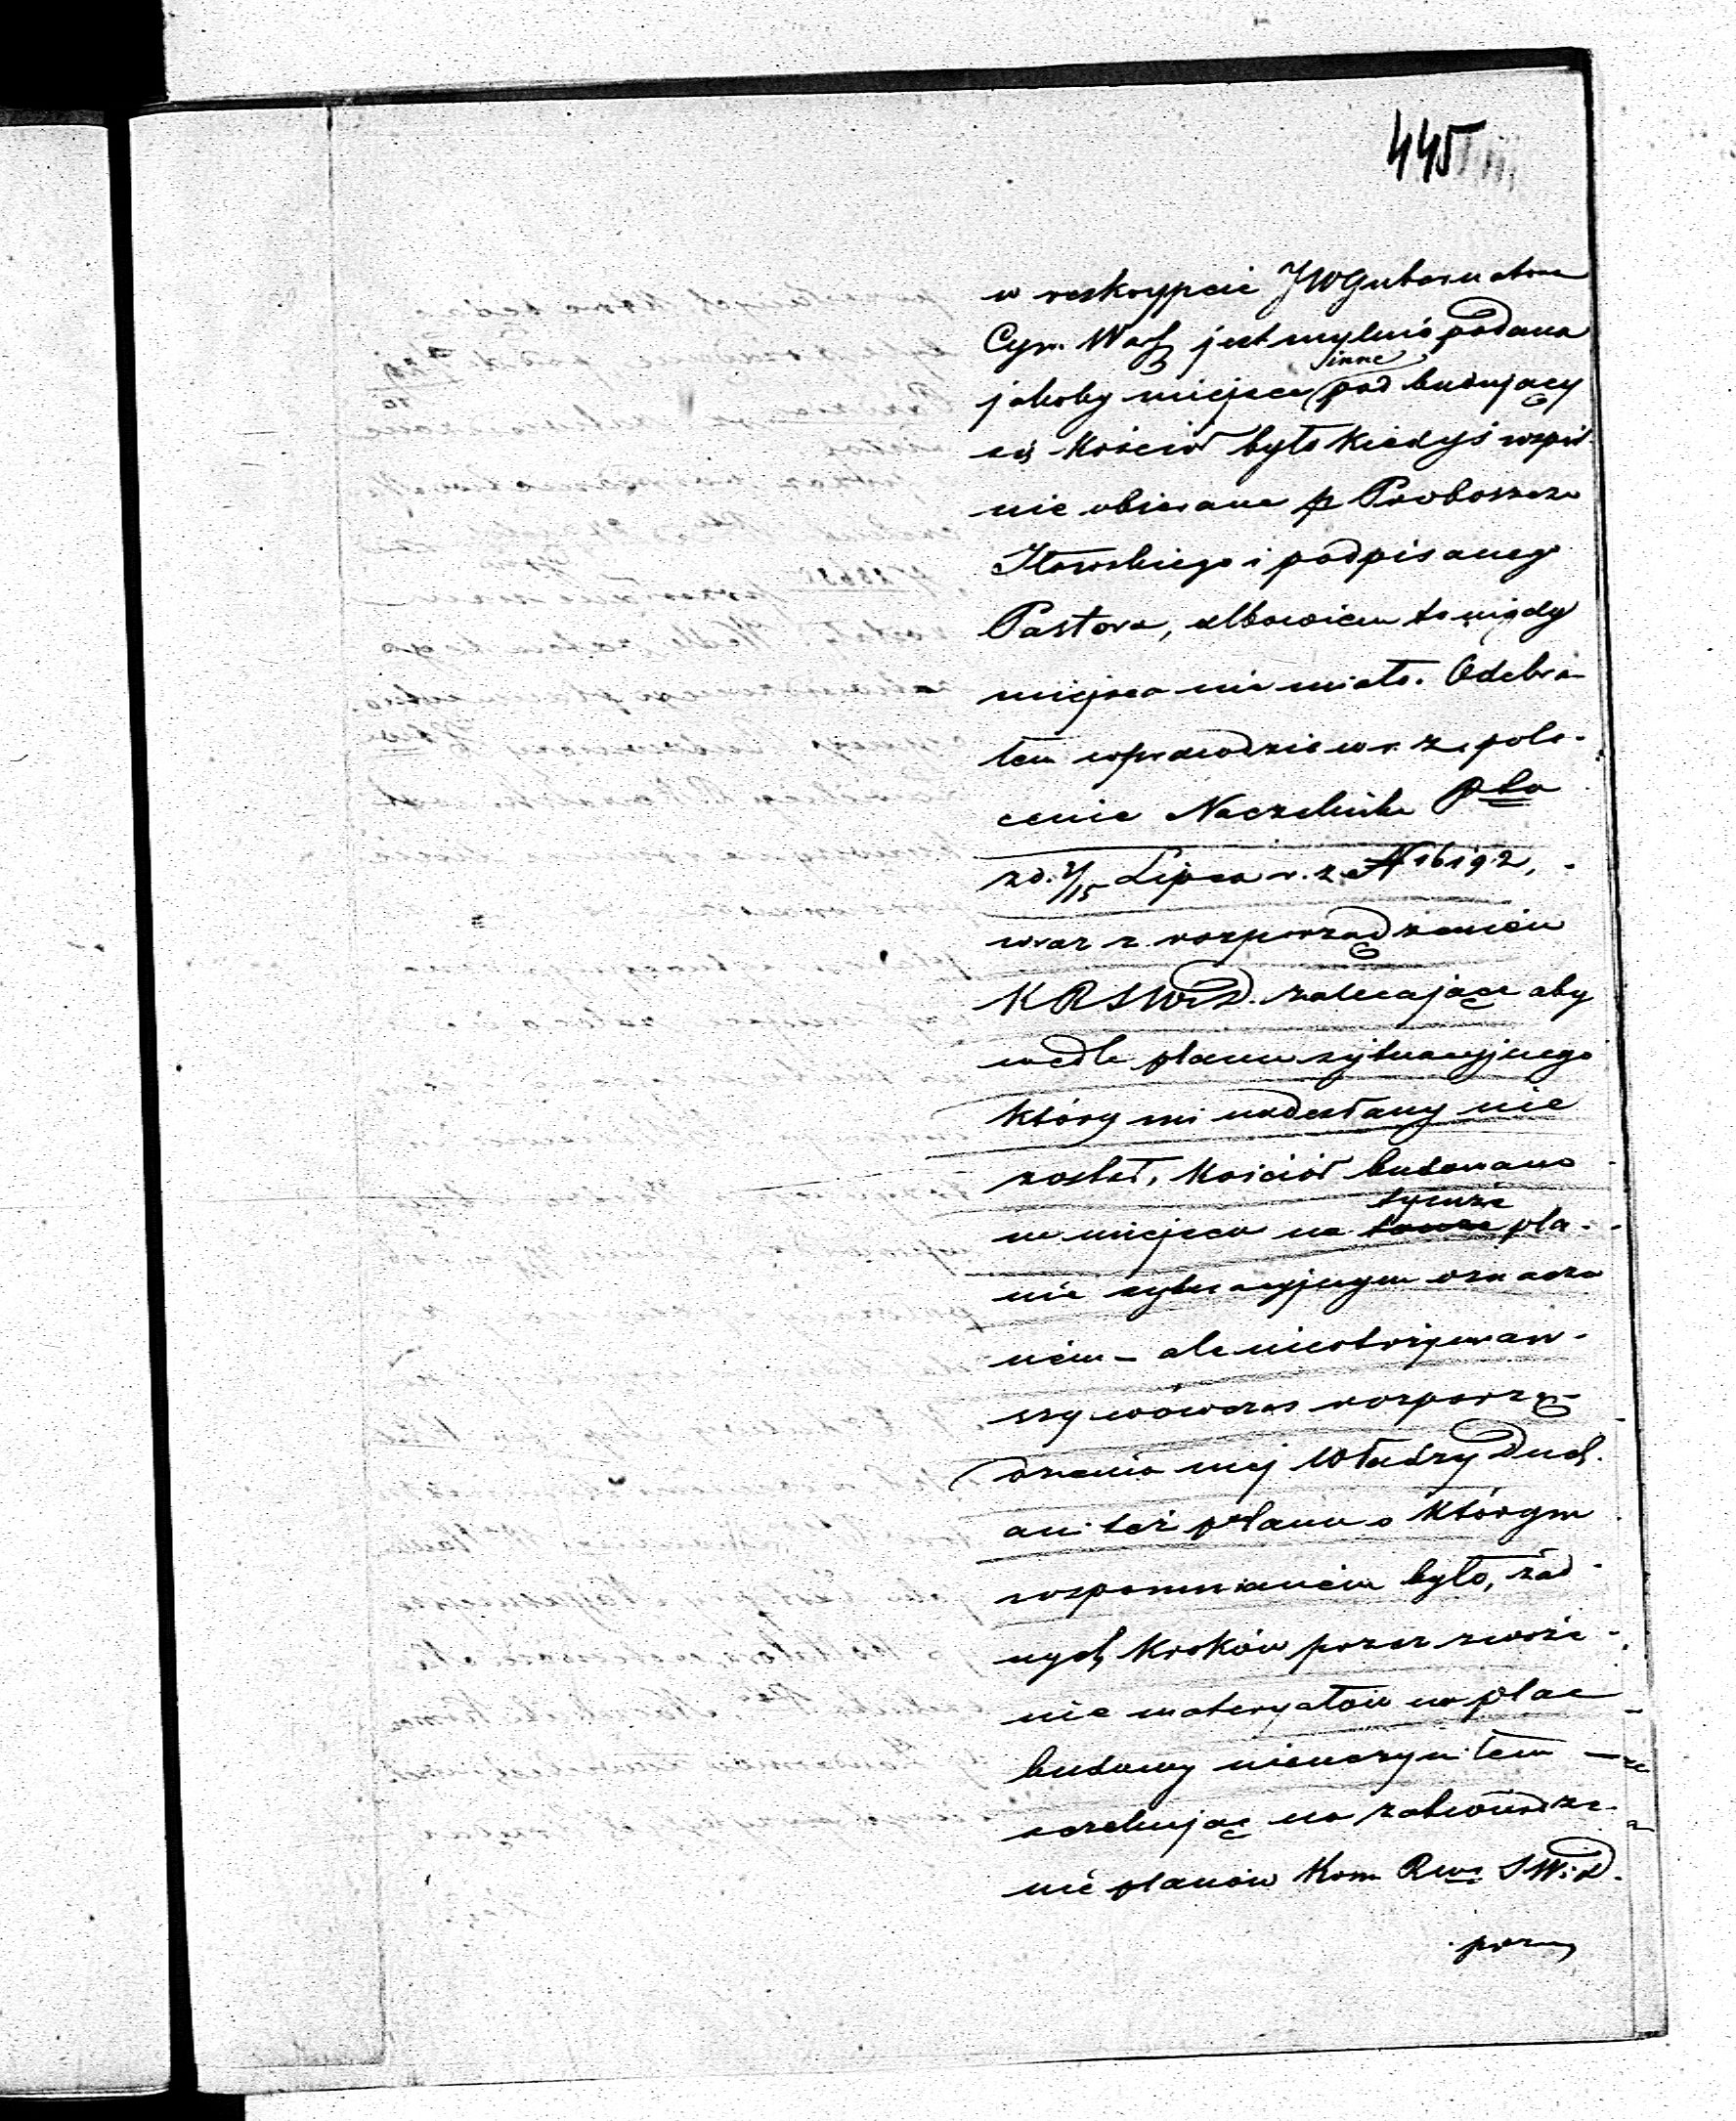 445
w reskrypcie JWGubernatora
Cyw. Warsz jest mylnie podana
jakoby miejsce inne pod budujący
się Kościół było kiedyś wspól-
nie obierane pr Proboszcza
Iłowskiego i podpisanego
Pastora, albowiem to nigdy
miejsca nie miało. Odebra-
łem wprawdzie w r. z. pole-
cenie Naczelnika Ptu
z d. 3/15 Lipca r. z. N 16192,
wraz z rozporządzeniem
KRSWiD. zalecające aby
wedle planu sytuacyjnego
który mi nadesłany nie
został, Kościół budowano
w miejscu na tymże pla-
nie sytuacyjnym oznaczo
nem – ale nieotrzymaw-
szy wówczas rozporzą-
dzenia mej Władzy Duch.
ani też planu o którym
wspomnianem było, żad-
nych kroków przez zwoże-
nie materyałów na plac
budowy nieuczyniłem –
oczekując na zatwierdze-
nie planów Kom Rwa SWiD.
przez